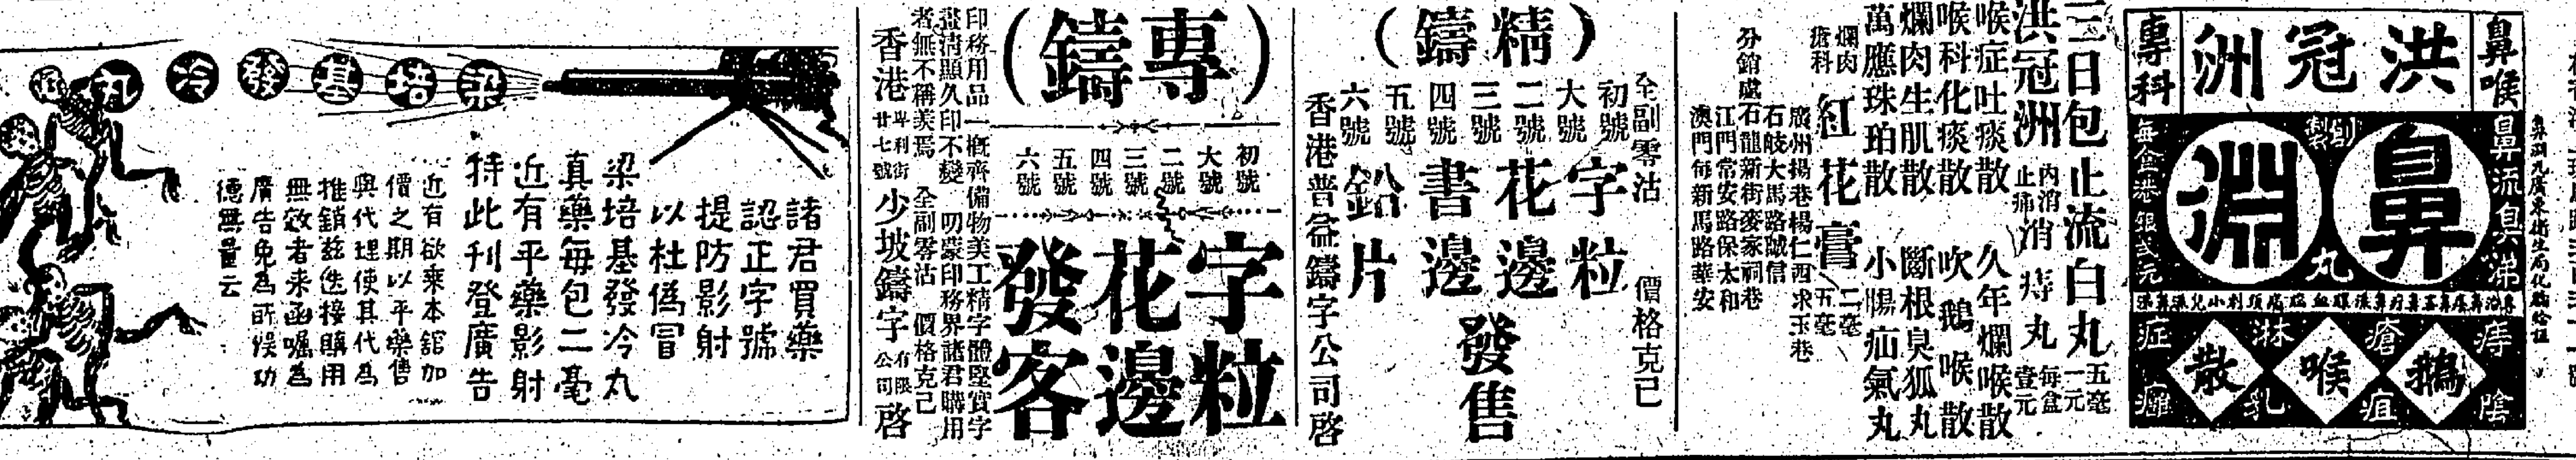 鼻喉
洪冠洲
專科
鼻淵丸
創製
鼻流臭涕
每盒港銀壹元
鵝喉散
痔
瘡
疽
淋
症
三日包止流白丸 五毫 一元
洪冠洲 內消 止痛 消痔丸 每盒 壹元
喉症吐痰散 久年爛喉散
喉科化痰散 吹鵝喉散
爛肉生肌散 斷根臭狐丸
萬應珠珀散 小腸疝氣丸
爛肉
瘡科 紅花膏 二毫 五毫
廣州揚巷楊仁西求玉巷
石岐大馬路誠信
分館處石龍新街麥家祠巷
江門常安路保太和
澳門每新馬路華安
(精鑄)
全副零沽 價格克己
初號
大號 字粒
二號
三號 花邊
四號 書邊
五號
六號 鉛片
發售
香港普益鑄字公司啓
(專鑄)
初號
大號
二號
三號
四號
五號
六號
字粒
花邊
發客
印務用品一概齊備物美工精字體堅實字
畫清顯久印不變 叨蒙印務界諸君購用
者無不稱羨焉 全副零沽 價格克己
香港卑利街廿七號少坡鑄字有限公司啓
梁培基發冷丸
諸君買藥
認正字號
提防影射
以杜偽冒
梁培基發冷丸
真藥每包二毫
近有平藥影射
特此刊登廣告
近有欲乘本舘加
價之期以平藥售
與代理使其代為
推銷茲迭接購用
無效者來函囑為
廣告免為所悞功
德無量云